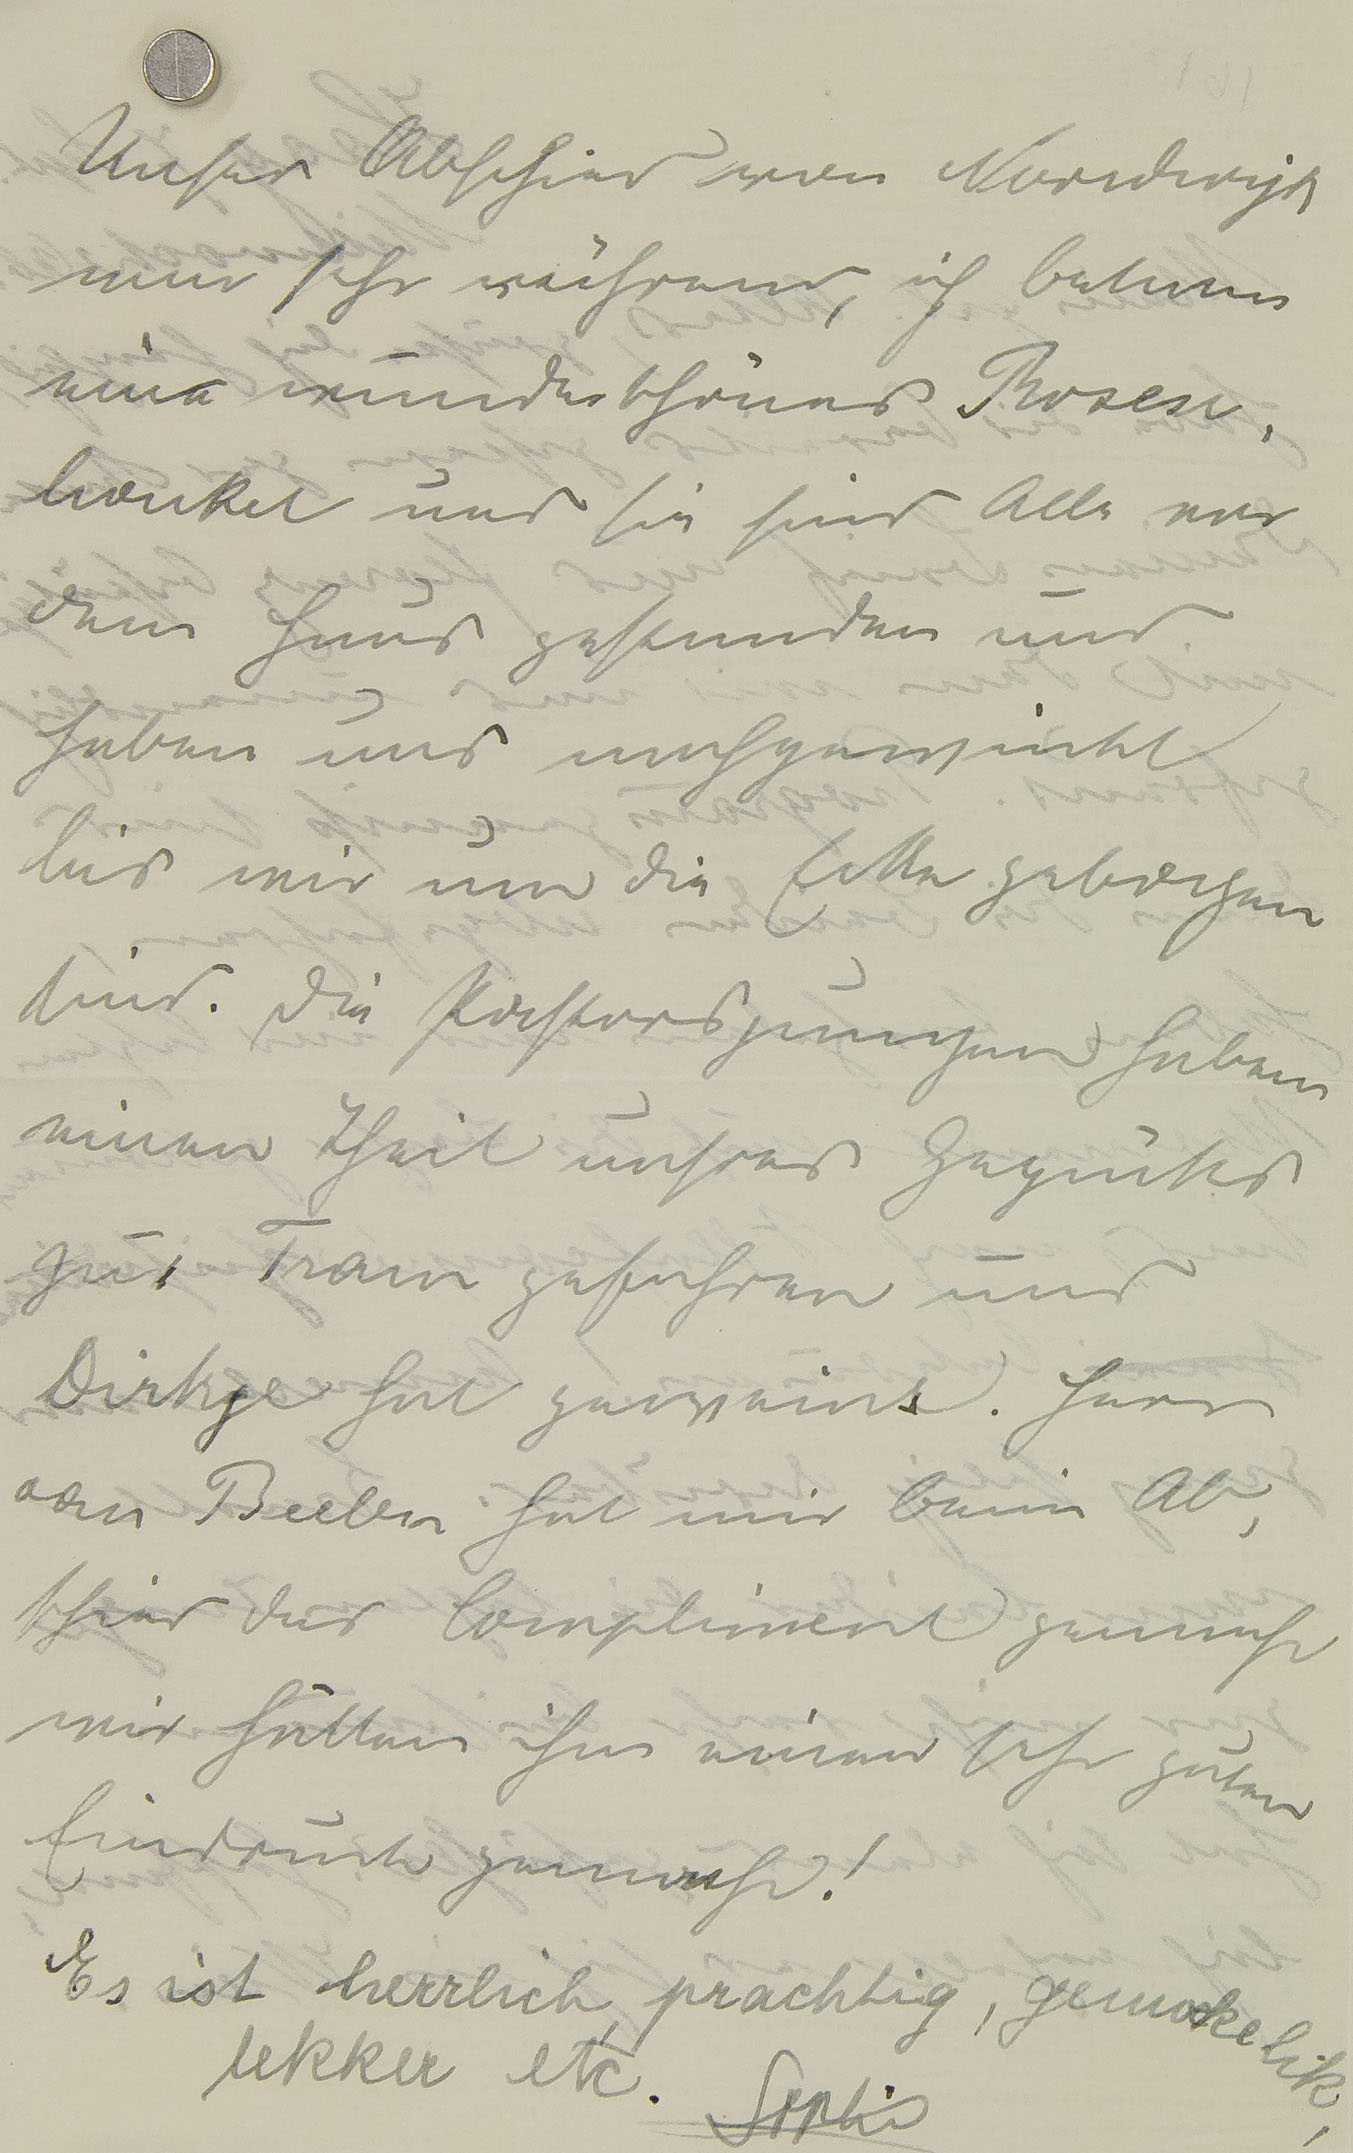 Unser Abschied von Nordwijk
war sehr rührend, ich bekam
ein wunderschönes Rosen,
bouket und sie sind Alle vor
dem Haus gestanden und
haben uns nachgewinkt
bis wir um die Ecke gebogen
sind. Die Pastorsjungen haben
einen Theil unsres Gepäcks
zur Tram gefahren und
Dirkje hat geweint. Herr
van Beelen hat mir beim Ab,
schied das Compliment gemacht
wir hätten ihm einen sehr guten
Eindruck gemacht!
Es ist herrlich, prachtig, gemakelik,
lekker etc. Sophie